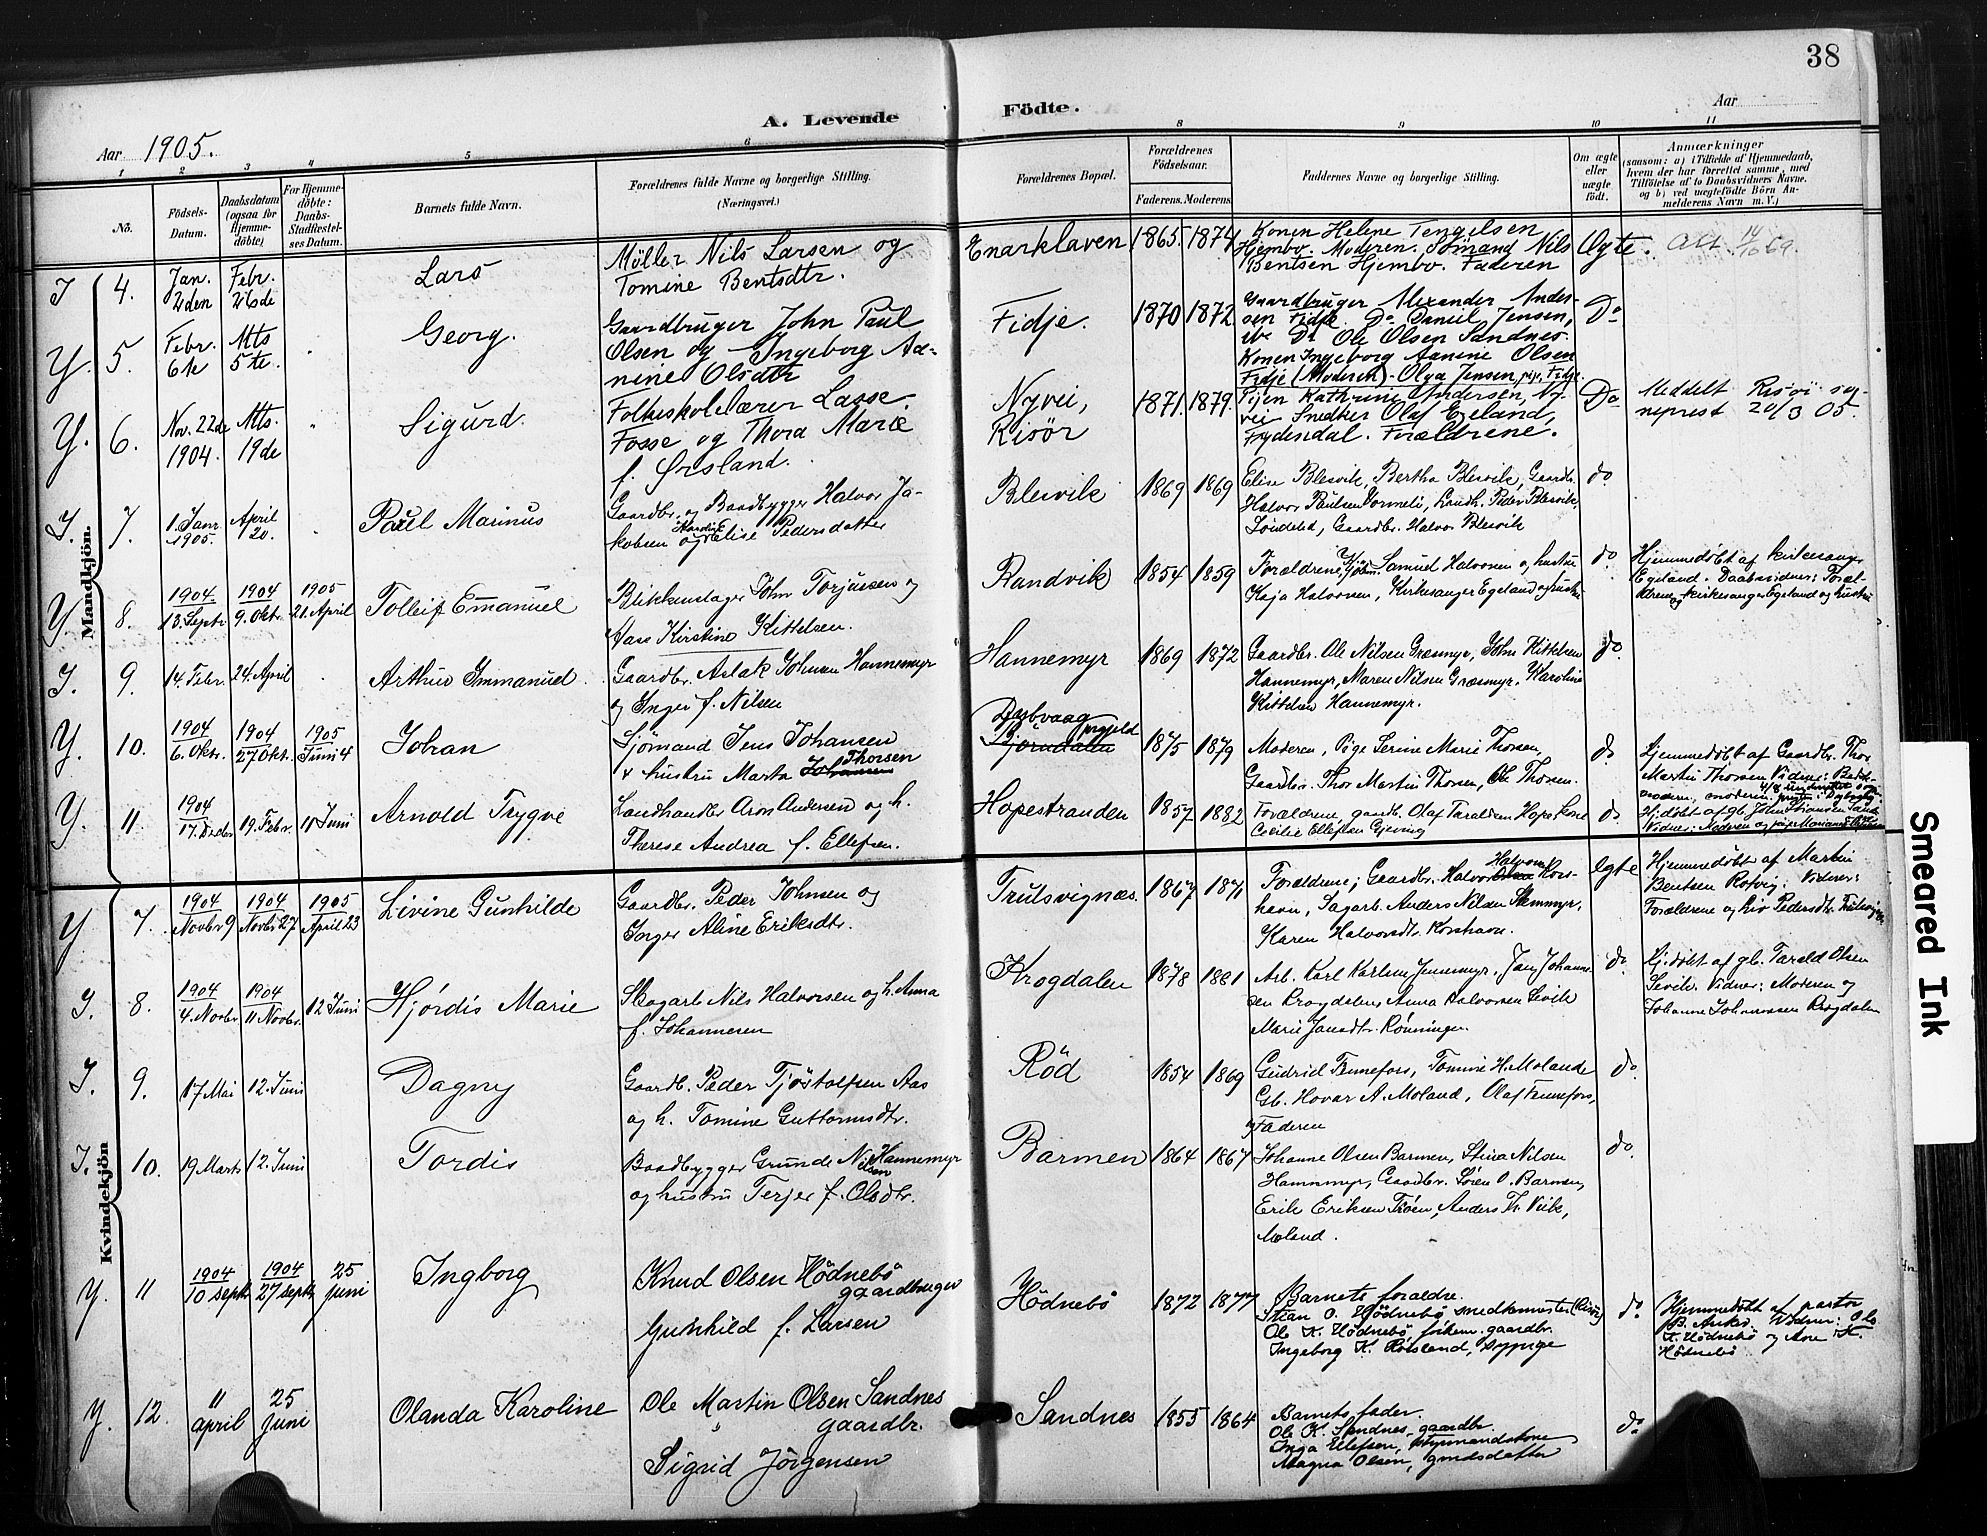 38
A. Levende
Födte.
Aar 1905.
Aar
1 2 3 4 5 6
8 9 10 11
No.
Födsels-
Datum.
Daabsdatum
(ogsaa for
Hjemme-
döbte)
For Hjemme-
döbte:
Daabs-
Stadfæstel-
ses Datum.
Barnets fulde Navn.
Forældrenes fulde Navne og borgerlige Stilling.
(Næringsvei.)
Forældrenes Bopæl.
Forældrenes
Födselsaar.
Faderens. Moderens.
Faddernes Navne og borgerlige Stilling.
Om ægte
eller
uægte
födt.
Anmærkninger
(saasom: a) i Tilfælde af Hjemmedaab,
hvem der har forrettet samme, med
Tilföielse af to Daabsvidners Navne.
og b) ved uægtefödte Börn An-
melderens Navn m. V.)
Mandkjön.
4.
Jan.
2den
Febr.
26de
Lars
Møller Nils Larsen og
Tomine Bentsdtr.
Enarklaven
1865. 1874
Konen Helene Tengelsen
Hjembo. Moderen. Sömand Nils
Bentsen Hjembo. Faderen
Ægte.
5.
Febr.
6te
Mts
5te.
Georg.
Gaardbruger John Paul
Olsen og Ingeborg Aa-
nine Olsdtr
Fidje.
1870 1872
Gaardbruger Alexander Ander-
sen Fidje. Do Daniel Jensen,
Do Ole Olsen Sandnes.
Konen Ingeborg Aanine Olsen
Fidje (Moderen). Olga Jensen, pige, Fidje.
Do
6.
Nov. 22de
1904.
Mts.
19de
Sigurd.
Folkeskolelærer Lasse
Fosse og Thora Marie
f. Örsland.
Nyvei,
Risör
1871 1879.
Pigen Kathrine Andersen, Ny-
vei Snedker Olaf Egeland,
Frydendal. Forældrene.
Do
Meddelt Risör sog-
neprest 20/3 05.
7.
1. Janr.
1905.
April
20.
Paul Marinus
Gaardbr. og Baadbygger Halvor Ja-
kobsen og Elise Pedersdatter
Blesvik
1869 1869
Elise Blesvik, Bertha Blesvik, Gaardb.
Halvor Paulsen Dormeli, Landh. Peder Blesvik,
Söndeled, Gaardbr. Halvor Blesvik
do.
8.
1904
13. Septr
1904
9. Oktr.
1905
21. April
Tolleif Emanuel
Blikkenslager John Torjussen og
Aase Kirstine Kittelsen.
Randvik
1854 1859
Forældrene, Kjøbm. Samuel Halvorsen og hustru
Kaja Halvorsen, Kirkesanger Egeland og hustru
do.
Hjemmedöbt af kirkesanger
Egeland. Daabsvidner: Foræl-
drene og kirkesanger Egeland og hustru
9.
14. Febr.
24. April
Arthur Immanuel
Gaardbr. Aslak Johnsen Hannemyr
og Inger f. Nilsen
Hannemyr
1869 1872
Gaardbr. Ole Nilsen Græsmyr, John Kittelsen
Hannemyr, Maren Nilsen Græsmyr, Karoline
Kittelsen Hannemyr.
do.
10.
1904
6. Oktr.
1904
27 Oktr.
1905
Juni 4
Johan
Sjömand Jens Johansen
& hustru Marta Johansen Thorsen
Dybvaag prgjeld
Bjørndalen
1875 1879
Moderen, Pige Serine Marie Thorsen,
Gaardbr. Thor Martin Thorsen, Ole Thorsen.
do
Hjemmedöbt af Gaardbr. Thor
Martin Thorsen Vidner: Beste-
moderen, moderen,
11
1904
17. Decbr
19. Febr.
11 Juni
Arnold Trygve
Landhandler Aron Andersen og h.
Therese Andrea f. Ellefsen.
Hopestranden
1857 1882
Forældrene, gaardb. Olaf Taraldsen Hope, kone
Cecilie Ellefsen Gjeving
do
Kvindekjön
7.
1904
Novbr 9
1904
Novbr 27
1905
April 23
Livine Gunhilde
Gaardbr. Peder Johnsen og
Inger Aline Eriksdtr.
Trulsvignæs.
1867 1871
Forældrene; Gaardbr. Halvor Halvorsen Kors-
havn, Sagarb. Anders Nilsen Stemmyr,
Karen Halvorsdtr. Korshavn.
Ægte
Hjemmedöbt af Martin
Bentsen Røtvig; Vidner:
Forældrene og Liv Pedersdtr.
8.
1904
4. Novbr
1904
11 Novbr.
12 Juni
Hjórdis Marie
Skogarb. Nils Halvorsen og h. Anna
f. Johannesen
Krogdalen
1878 1881
Arb. Karl Karlsen Jennemyr, Jan Johanne-
sen Krogdalen, Anna Halvorsen Levik
Marie Jansdtr. Rønningen.
do
Hj. döbt af gb. Tarald Olsen
Levik. Vidner: Moderen og
Johanne Johannessen Krogdalen
9.
17 Mai
12. Juni
Dagny
Gaardb. Peder Tjöstolfsen Aas
og h. Tomine Guttormsdtr.
Röd
1854 1869
Gudrid Fennefoss, Tomine H. Molande
Gb. Hovar A. Moland, Olaf Fennefoss,
og Faderen
do.
10.
19 Marts
12. Juni
Tordis
Baadbygger Grunde Nilsen Hannemyr
og hustru Terjer f. Olsdtr.
Barmen
1864 1867
Johanne Olsen Barmen, Stina Nilsen
Hannemyr, Gaardbr. Sören O. Barmen,
Erik Eriksen Tröen, Anders Th. Veibe,
Moland.
do.
11
1904
10 septb
1904
27 septb
25
Juni
Ingborg
Knud Olsen Hödnebö
gaardbruger
Gunhild f. Larsen
Hödnebö
1872 1877
Barnets forældre.
Stian O. Hödnebö smedkemester (Risör)
Ole K. Hödnebö, forhenv. gaardbr.
Ingeborg K. Röisland, sypige
do.
Hjemmedöbt af pastor
B. Anker. Vidner: Ole
K. Hödnebö og Ane K.
Hödnebö
12.
11
april
25
Juni
Olanda Karoline
Ole Martin Olsen Sandnes
gaardbr.
Sigrid Jörgensen
Sandnes
1855 1864
Barnets fader.
Ole K. Sandnes, gaardbr.
Inga Ellefsen, styrmandskone
Magna Olsen, gmdsdatter
do
Smeared Ink